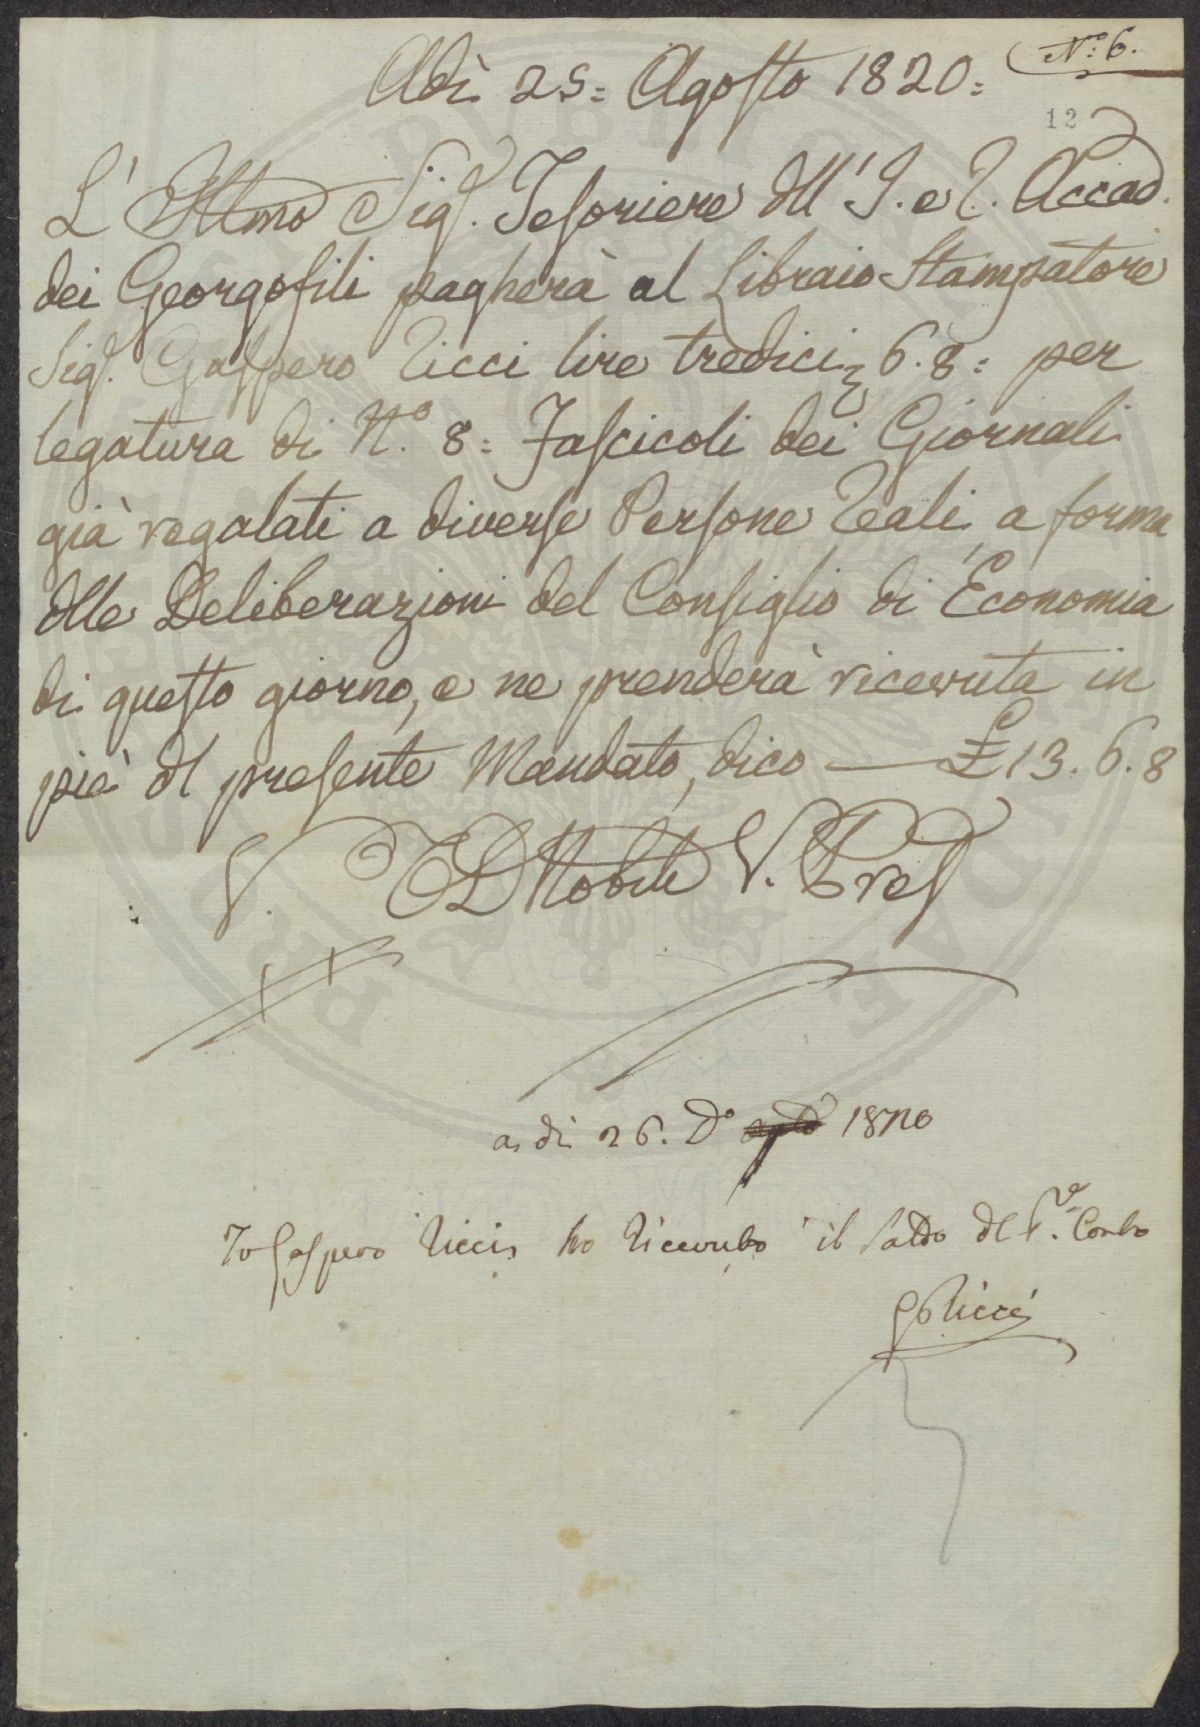 N.° 6.
Adì 25= Agosto 1820=
12
L' Illmo Sig.r Tesoriere dll' I. e R. Accad.
dei Georgofili pagherà al Libraio Stampatore
Sig.r Gaspero Ricci lire tredici 6. 8= per
legatura di N.° 8= Fascicoli dei Giornali
già regalati a diverse Persone Reali, a forma
dlle Deliberazioni del Consiglio di Economia
di questo giorno, e ne prenderà ricevuta in
piè dl presente Mandato, dico — £ 13. 6. 8
V. Nobili V. Pres
a dì 26. D° 1820
Io Gaspero Ricci ho Ricevuto il Saldo dl Conto
Ricci